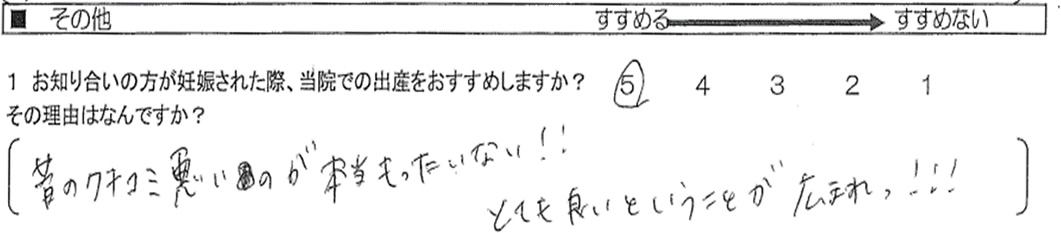 ■ その他 すすめる すすめない
1 お知り合いの方が妊娠された際、当院での出産をおすすめしますか？ 5 4 3 2 1
その理由はなんですか？
昔のクチコミ悪いのが本当もったいない！！
とても良いということが広まれっ！！！